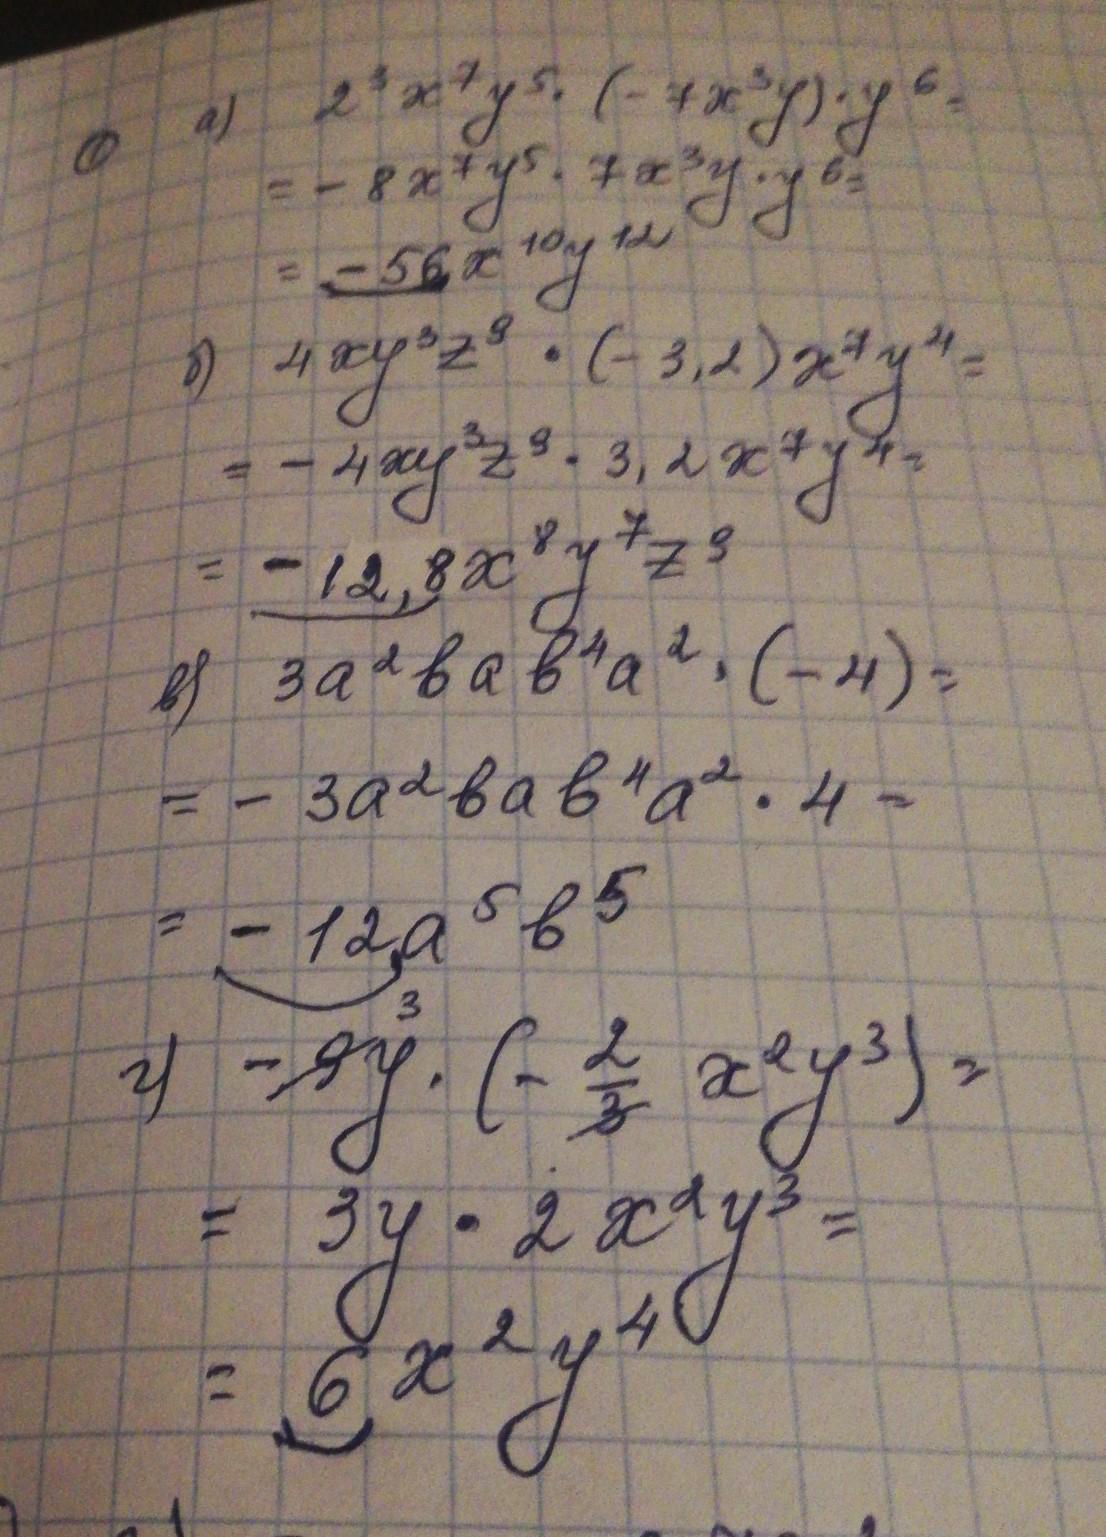 ① а) 2³x⁷y⁵·(-7x³y)·y⁶=
=-8x⁷y⁵·7x³y·y⁶=
=-56x¹⁰y¹²
б) 4xy³z⁹·(-3,2)x⁷y⁴=
=-4xy³z⁹·3,2x⁷y⁴=
=-12,8x⁸y⁷z⁹
в) 3a²bab⁴a²·(-4)=
=-3a²bab⁴a²·4=
=-12a⁵b⁵
3
г) -9y·(-2/3 x²y³)=
=3y·2x²y³=
=6x²y⁴